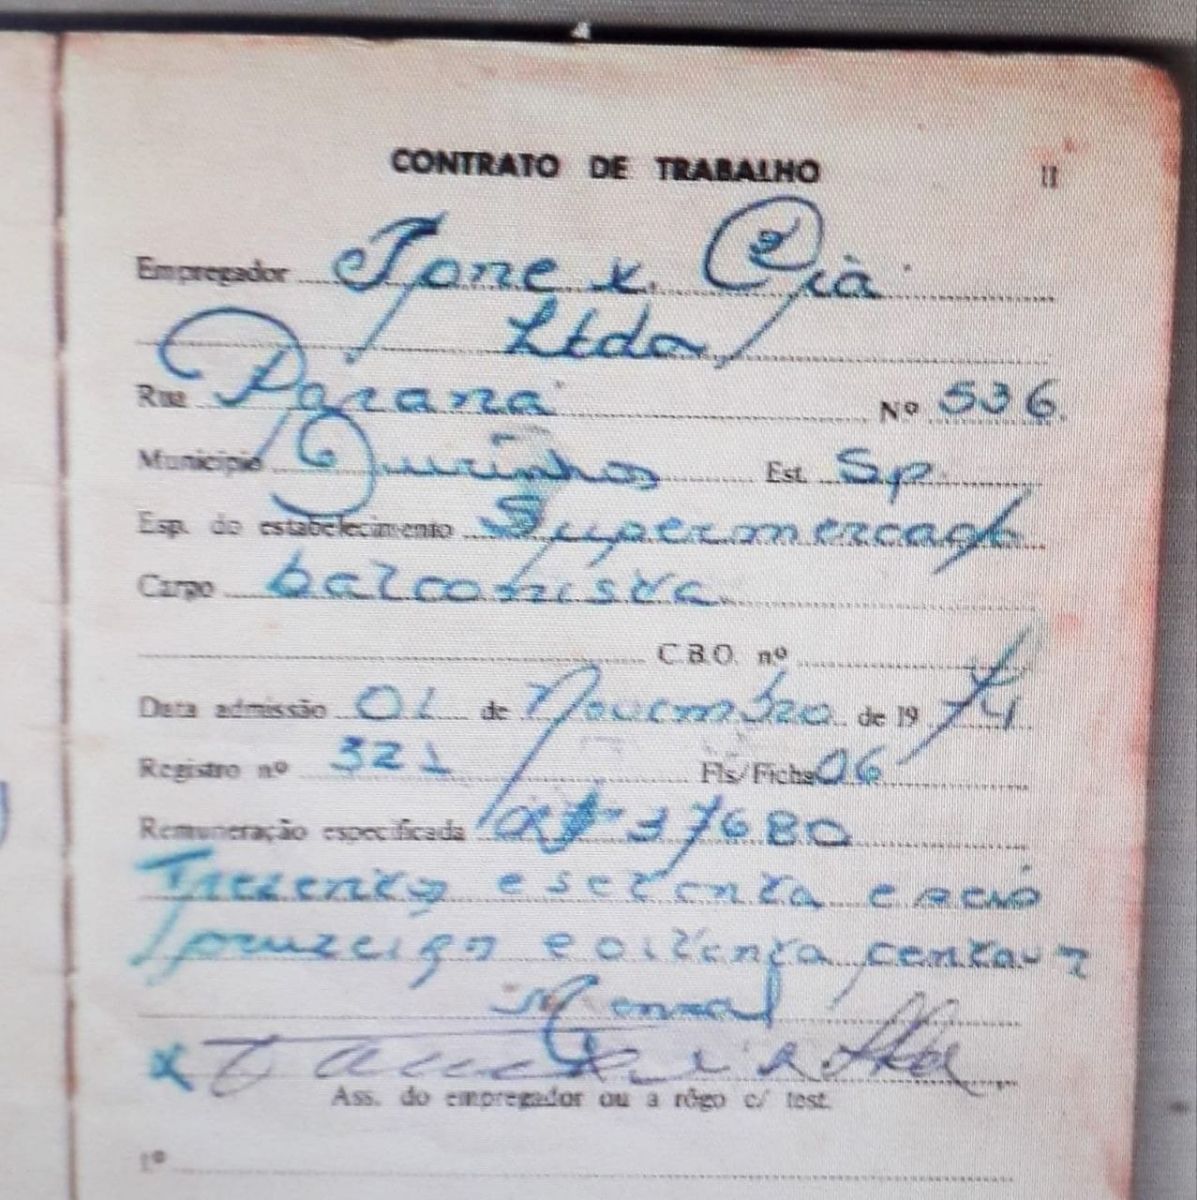 CONTRATO DE TRABALHO 11
Empregador Tone & Cia
Ltda
Rua Paraná Nº 536.
Município Ourinhos Est. Sp.
Esp. do estabelecimento Supermercado
Cargo balconista
C.B.O. nº
Data admissão 01 de Novembro de 1974
Registro nº 321 Fls/Ficha 06
Remuneração especificada 37680
Trezentos e setenta e seis
cruzeiros e oitenta centavos
Mensal
Ltda
Ass. do empregador ou a rôgo c/ test.
1º